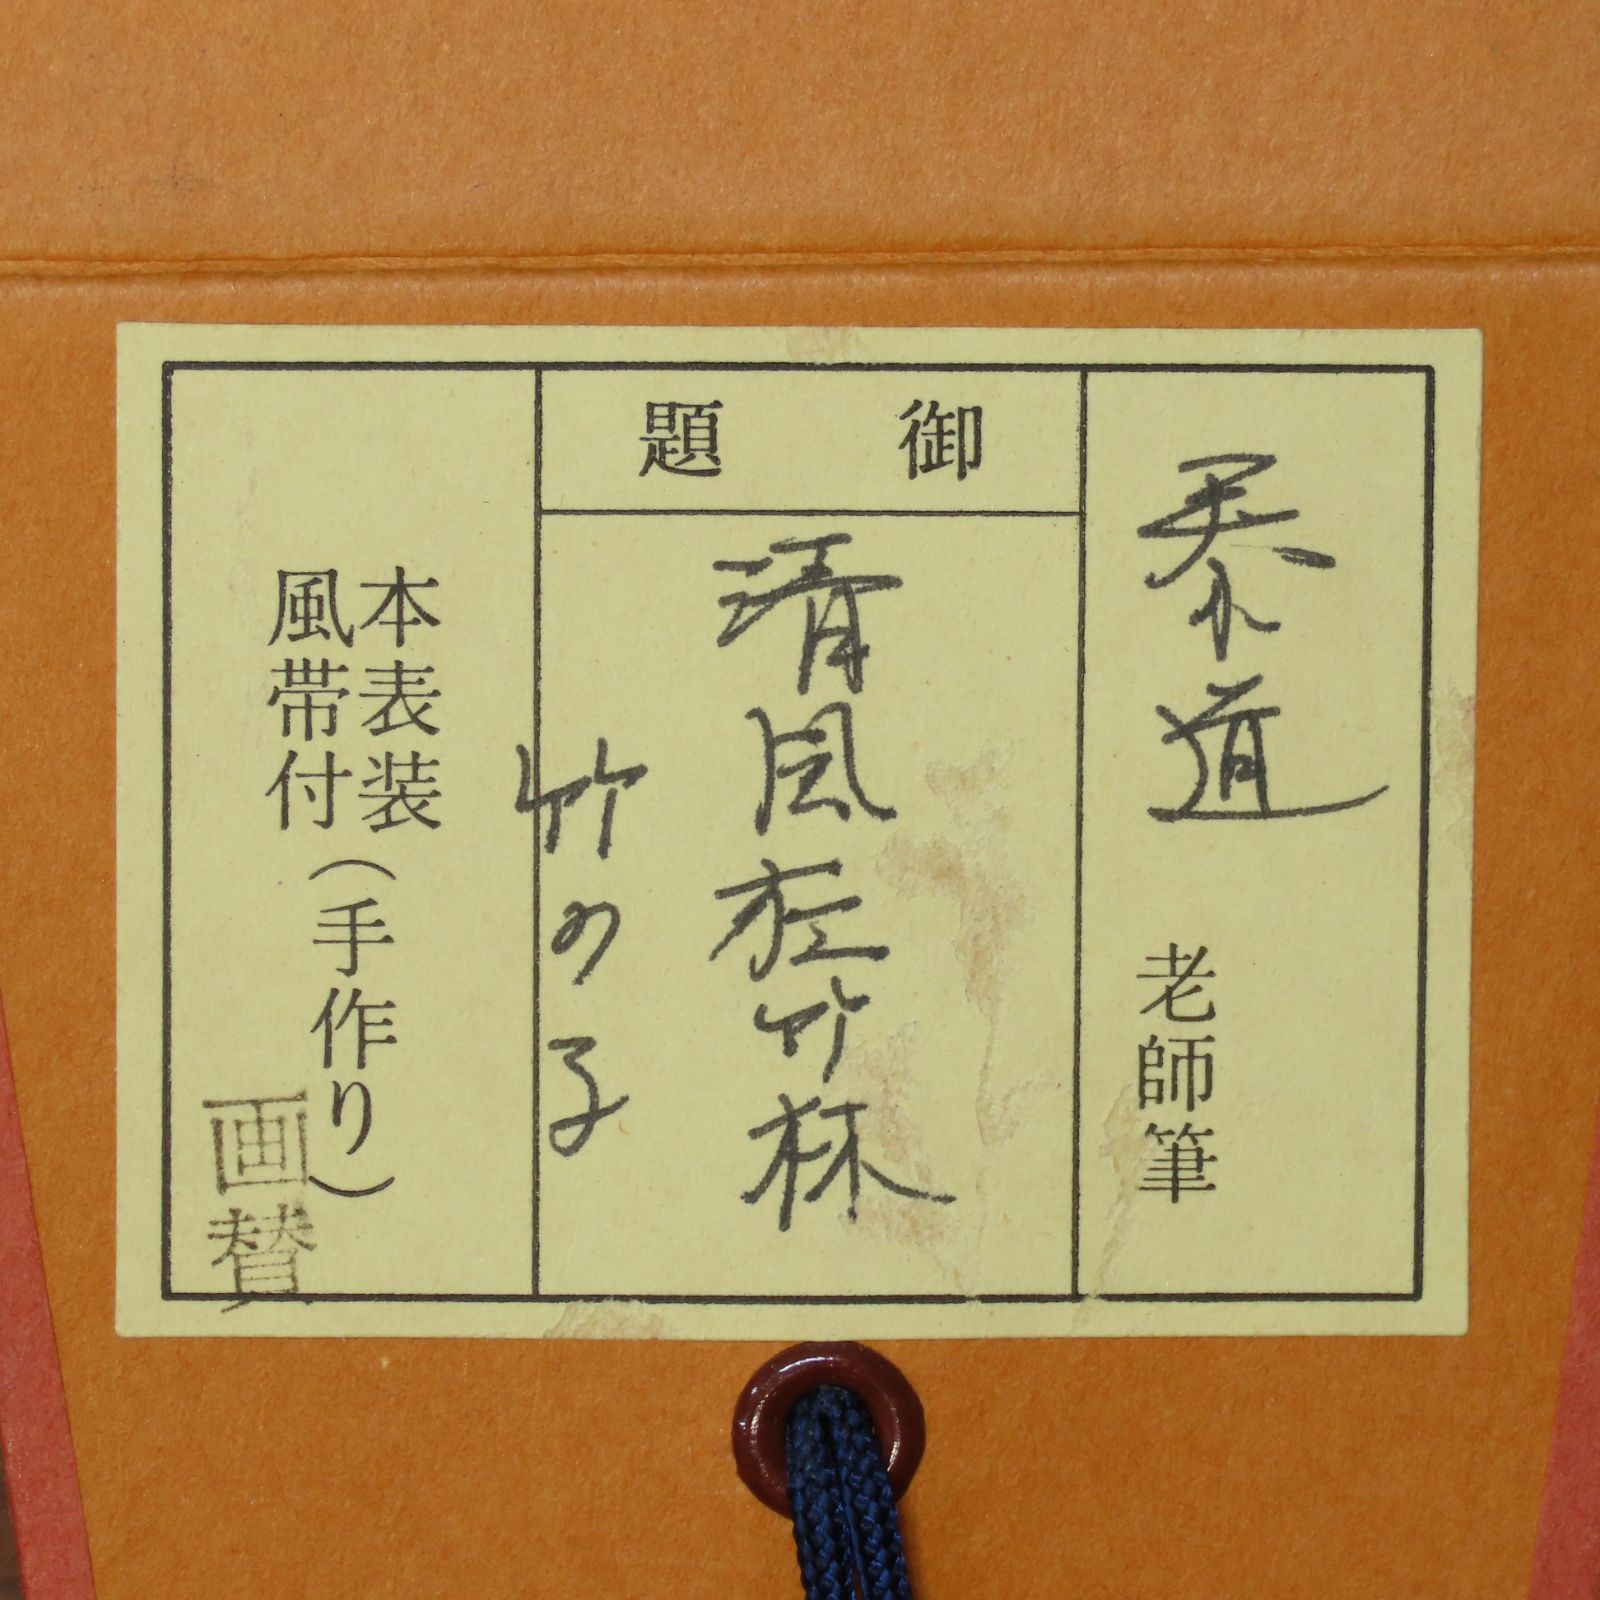 泰道 老師筆
御題
清風在竹林
竹の子
本表装
風帯付
（手作り）
画賛